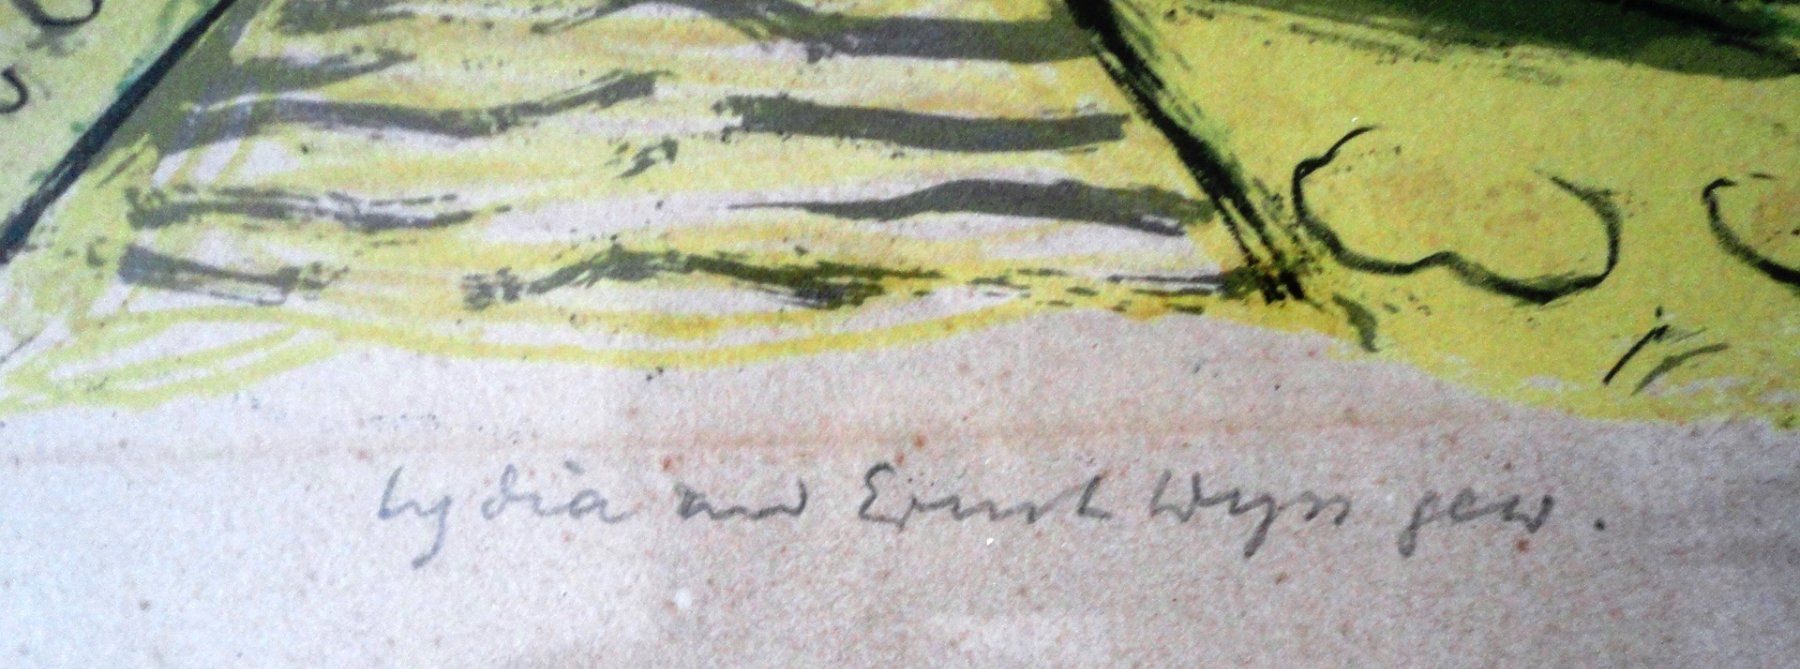 Lydia und Ernst Wyss gew.